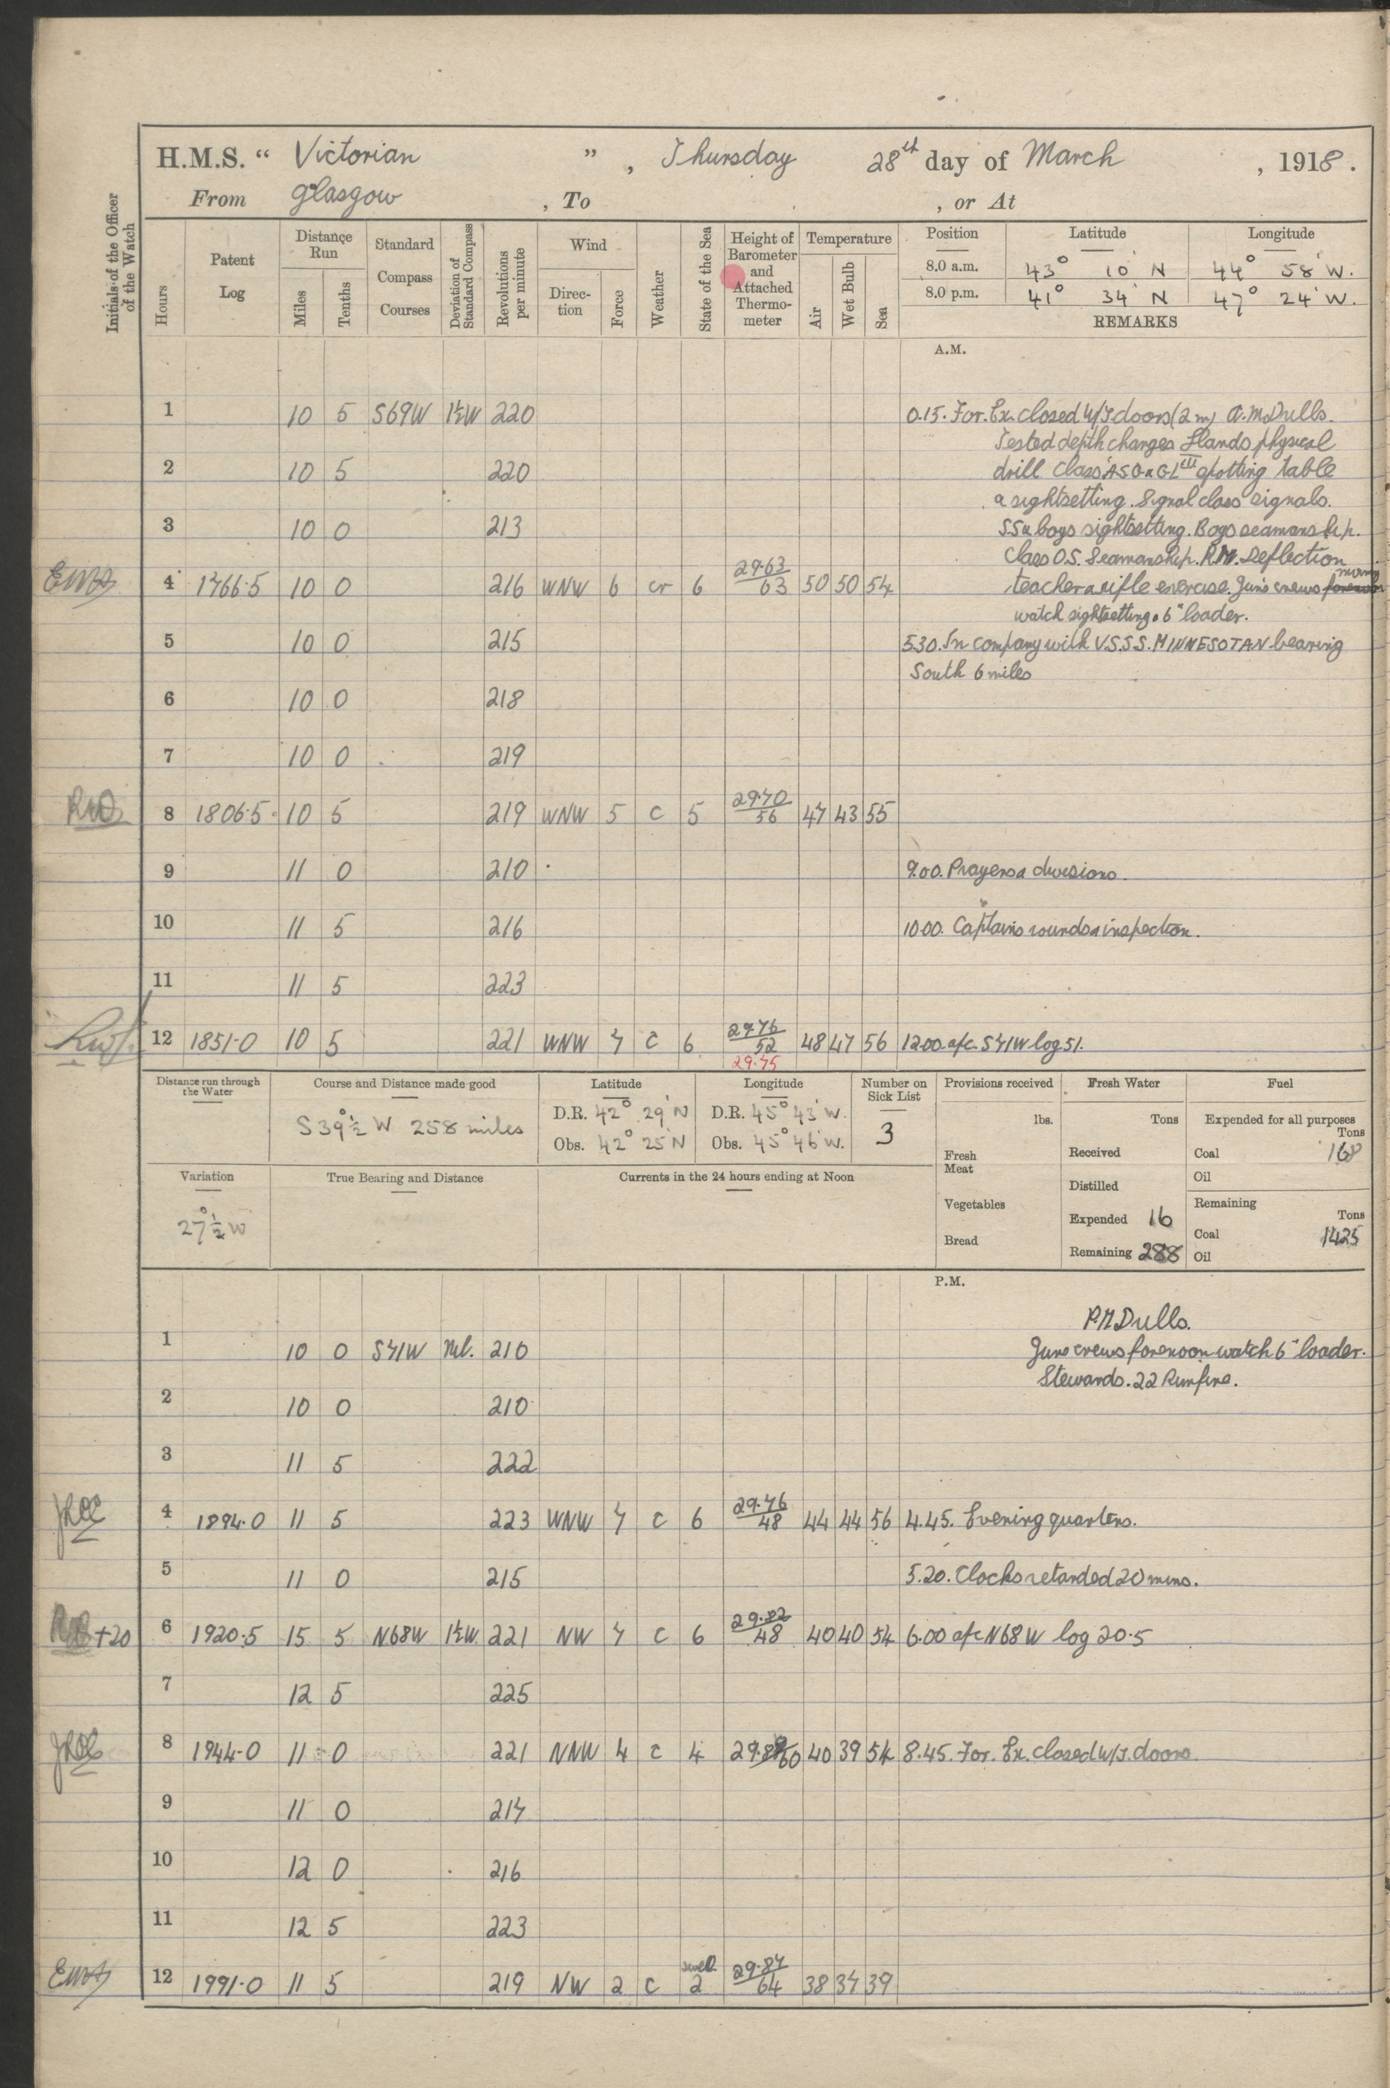 H.M.S. “ Victorian ” , Thursday 28th day of March , 1918 .
From Glasgow , To , or At
Initials of the Officer of the Watch
Hours
Patent Log
Distance Run
Miles
Tenths
Standard Compass Courses
Deviation of Standard Compass
Revolutions per minute
Wind
Direction
Force
Weather
State of the Sea
Height of Barometer and Attached Thermometer
Temperature
Air
Wet Bulb
Sea
Position Latitude Longitude
8.0 a.m. 43° 10' N 44° 58' W.
8.0 p.m. 41° 34' N 47° 24' W.
REMARKS
A.M.
1 10 5 S69W 1½W 220 0.15. For. Ex. closed W/T doors (2 m) A.M Drills.
Tested depth charges Hands physical
2 10 5 220 drill class ASG & GL III spotting table
& sightsetting. Signal class signals.
3 10 0 213 SS & boys sightsetting. Boys seamanship.
Class O.S. Seamanship. R.M. Deflection
4 1766.5 10 0 216 WNW 6 cr 6 29.63 63 50 50 54 teacher & rifle exercise. Guns crews morning
watch sightsetting & 6" loader.
5 10 0 215 5.30. In company with U.S.S.S. MINNESOTAN bearing
South 6 miles
6 10 0 218
7 10 0 219
8 1806.5 10 5 219 WNW 5 c 5 29.70 56 47 43 55
9 11 0 210 9.00. Prayers & divisions.
10 11 5 216 10.00. Captains rounds & inspection.
11 11 5 223
12 1851.0 10 5 221 WNW 7 c 6 29.76 52 48 47 56 12.00. a/c. S71W log 51.
29.75
Distance run through the Water
Course and Distance made good
S39°½ W 258 miles
Latitude
D.R. 42° 29' N
Obs. 42° 25' N
Longitude
D.R. 45° 43' W.
Obs. 45° 46' W.
Number on Sick List
3
Provisions received
lbs.
Fresh Meat
Vegetables
Bread
Fresh Water
Tons
Received
Distilled
Expended 16
Remaining 288
Fuel
Expended for all purposes
Tons
Coal 168
Oil
Remaining
Tons
Coal 1425
Oil
Variation
27°½ W
True Bearing and Distance
Currents in the 24 hours ending at Noon
P.M.
P.M Drills.
1 10 0 S71W Nil. 210 Guns crews forenoon watch 6" loader.
Stewards. .22 Rim fire.
2 10 0 210
3 11 5 222
4 1894.0 11 5 223 WNW 7 c 6 29.76 48 44 44 56 4.45. Evening quarters.
5 11 0 215 5.20. Clocks retarded 20 mins.
+20 6 1920.5 15 5 N68W 1½W 221 NW 7 c 6 29.82 48 40 40 54 6.00 a/c N68W log 20.5
7 12 5 225
8 1944.0 11 0 221 NNW 4 c 4 60 40 39 54 8.45. For. Ex. closed W/T. doors
9 11 0 217
10 12 0 216
11 12 5 223
12 1991.0 11 5 219 NW 2 c swell 2 29.87 64 38 37 39